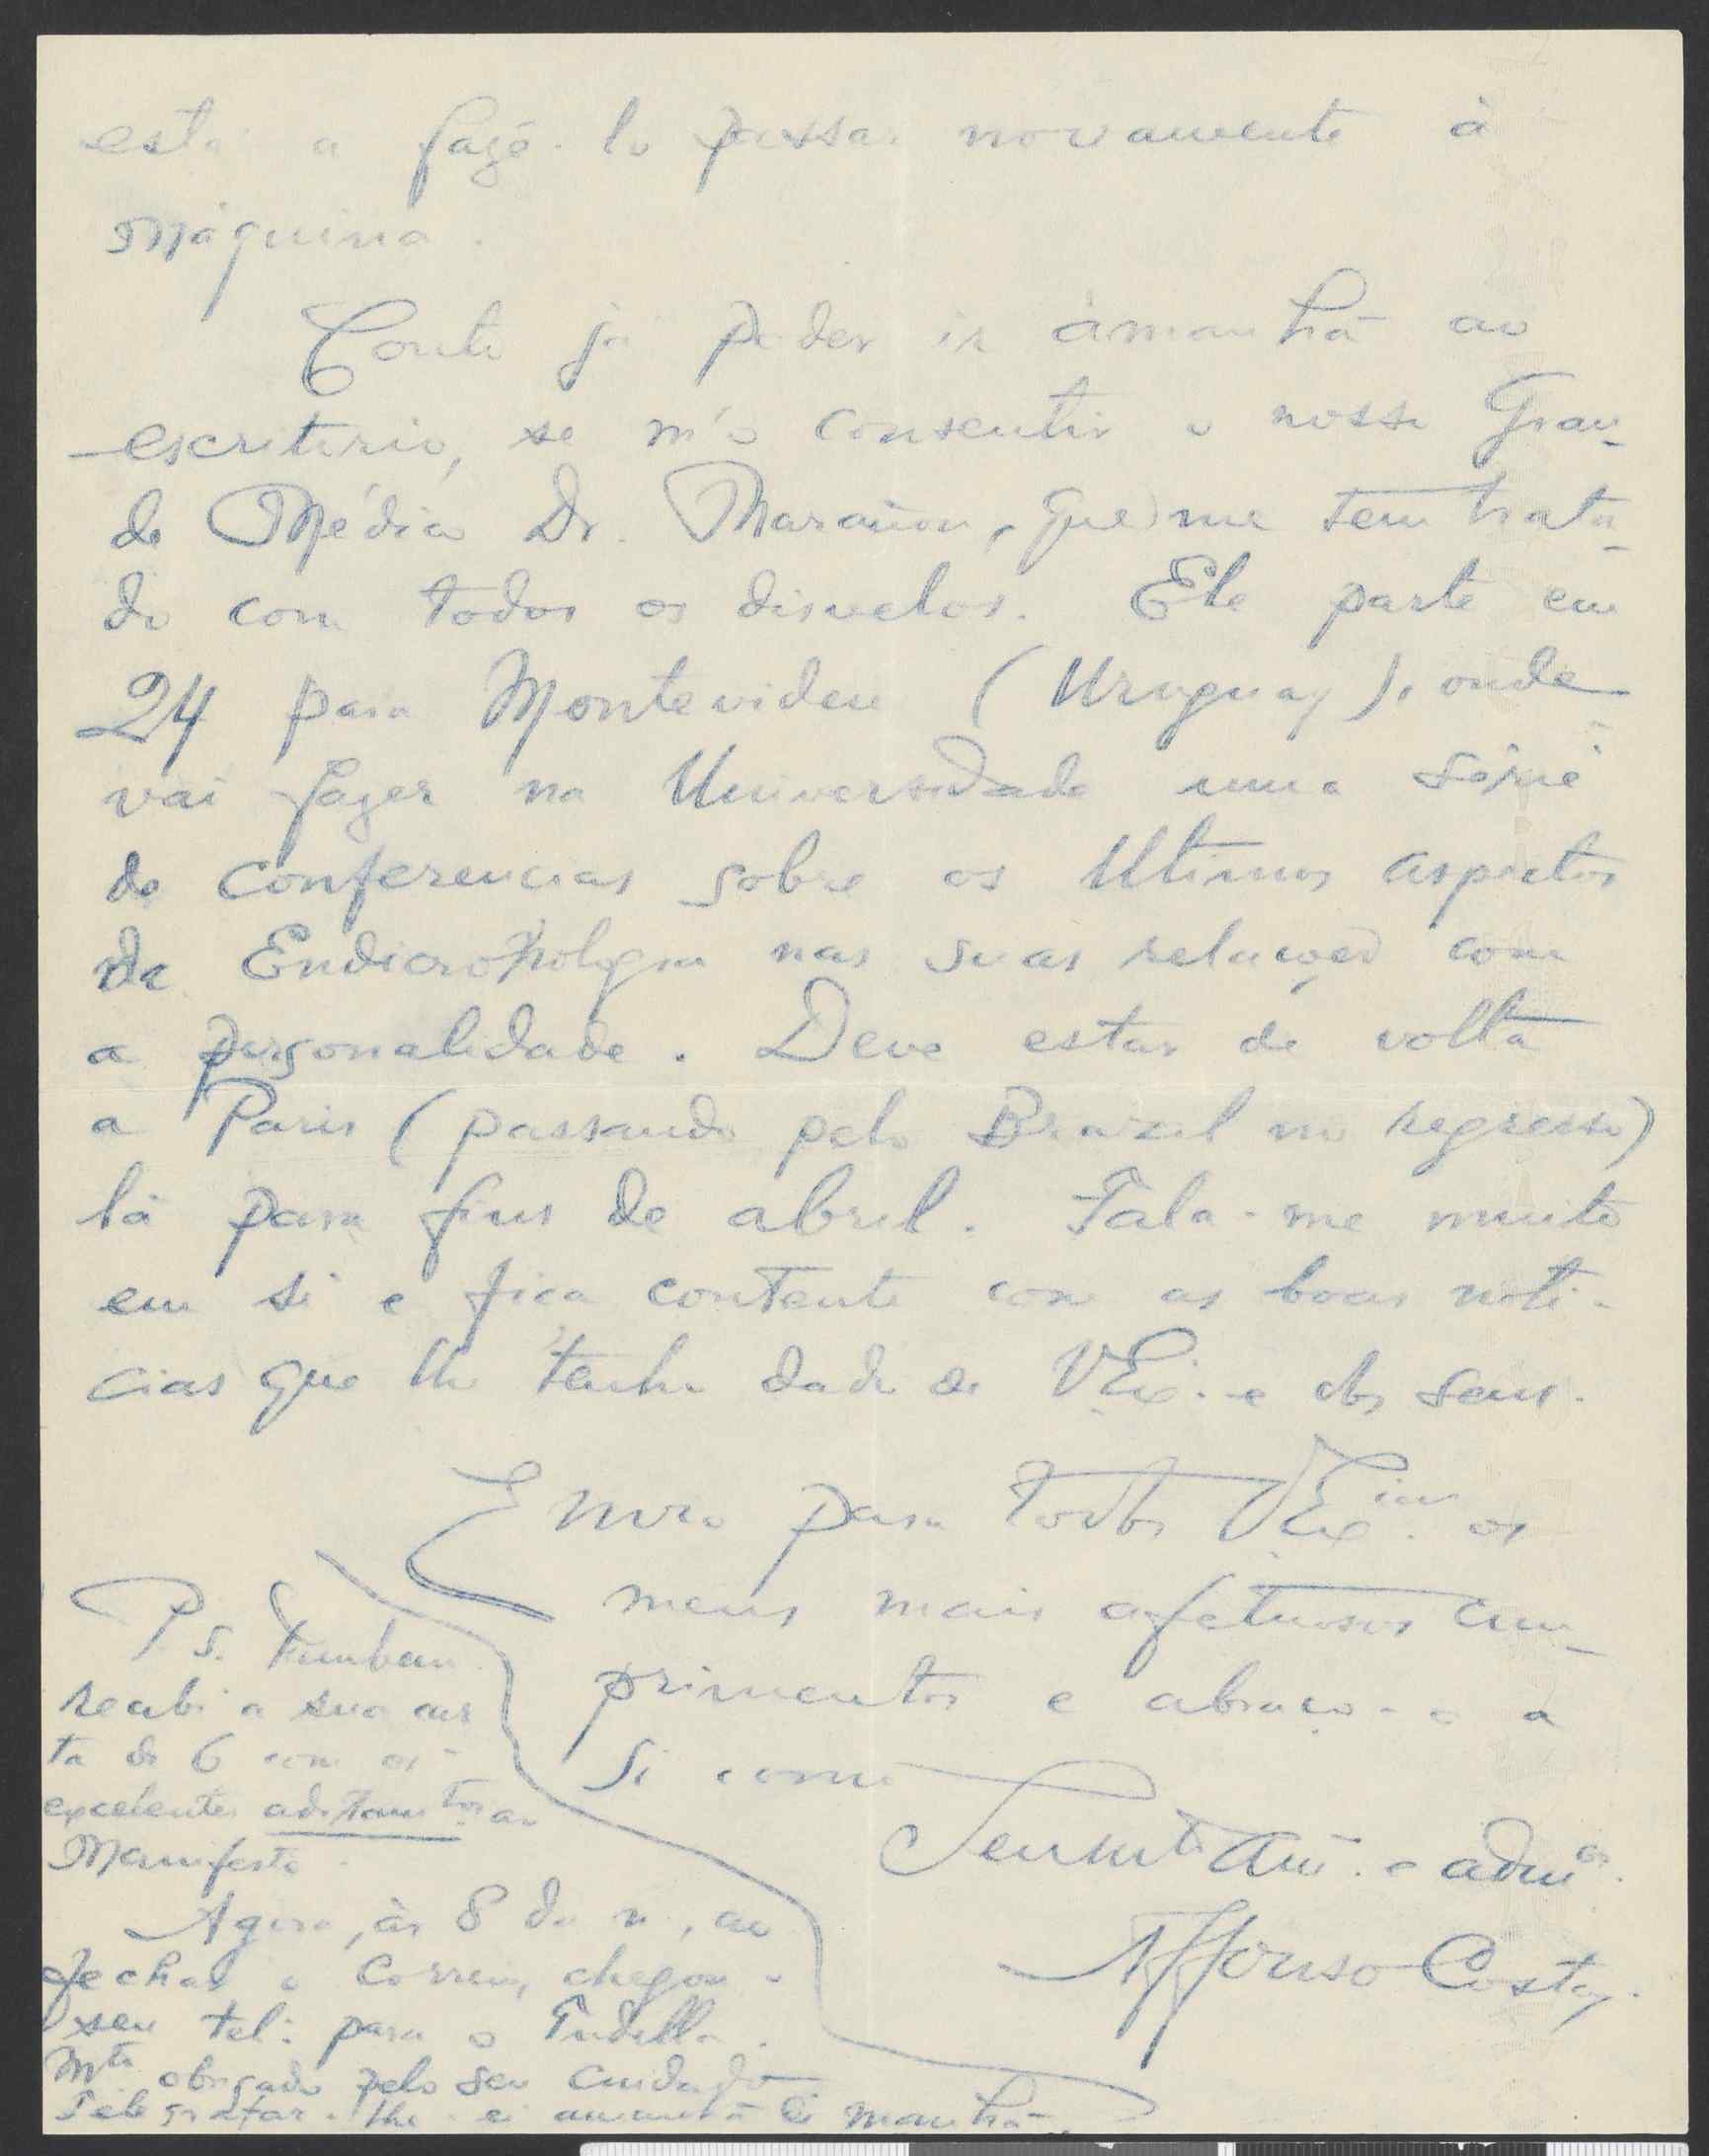 está a fazê-lo passar novamente à
máquina.
Conto já poder ir àmanhã ao
escritorio, se m'o consentir o nosso Gran-
de Médico Dr. Marañon, que me tem trata-
do com todos os disvelos. Ele parte em
24 para Montevideu (Uruguay), onde
vai fazer na Universidade uma série
de conferencias sobre os Ultimos aspectos
da nas suas relações com
a personalidade. Deve estar de volta
a Paris (passando pelo Brazil no regresso)
lá para fins de abril. Fala-me muito
em si e fica contente com as boas noti-
cias que lhe tenho dado de V.Ex. e dos seus.
Envio para todos V.Ex.cias os
meus mais afetuosos cum-
primentos e abraço-o a
si como
Seu mto Am. e admor.
Affonso Costa.
P.S. Tambem
recebi a sua car
ta de 6 com os
excelentes ao
Manifesto
Agora, às 8 da n, ao
fechar o Correio, chegou o
seu tel. para o
Mto obrigado pelo seu cuidado
Telegrafar-lhe-ei amanhã de manhã.